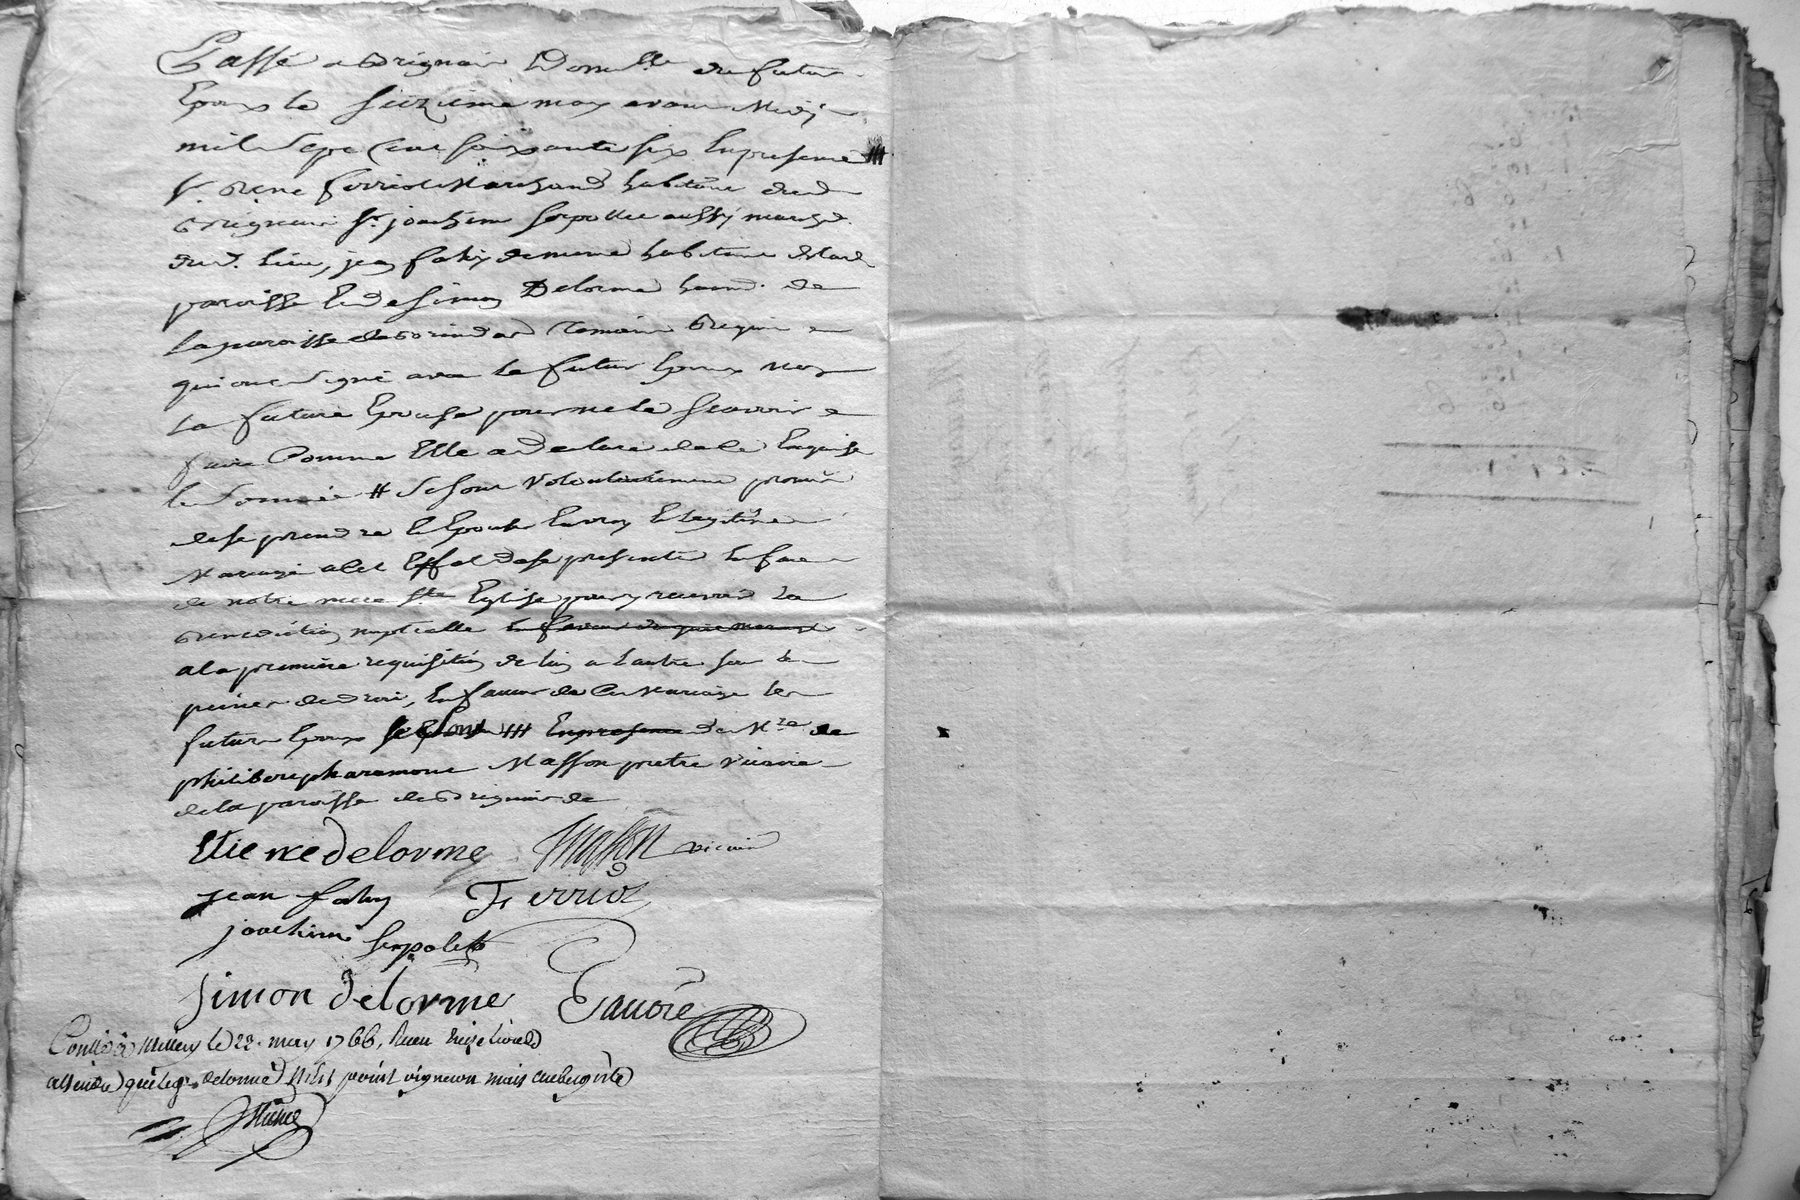 Passé a Brignais Domlle du futur
Epoux le seizieme may avant Midy
mil Sept Cent soixante six En presence ##
sr. Ferriot Marchand habitant dud
Brignais Sr. joachim Serpollet aussy march d.
dud. Lieu, jean fahy de meme habitant de lad
paroisse Et de Simon Delorme habit. de
La paroisse de Brindas Temoins Requis
qui ont Signé avec Le futur Epoux non
La future Epouse pour ne le Scavoir
faire Comme Elle a declaré de ce Enquise
et Sommée # Se sont Volontairement promis
de se prendre Et Epouser En vray Et legitime
Mariage a cet Effet de se presenter En face
de notre mere Ste Eglise pour y recevoir La
Benediction nuptialle En faveur du quel mariage
a la premiere requisition de lun a Lautre sous les
peines de droit, En faveur de Ce Mariage les
futurs Epoux se sont ### En presence de Mre de
philibert pharamont Masson pretre vicaire
de la paroisse de Brignais de
Etienne delorme Masson vicaire
jean fahy Ferriot
joachim Serpolet
Simon delorme
Conllé a Millery le 22. may 1766, Receu treize livres
attendu que led. delorme n'est point vigneron mais aubergiste